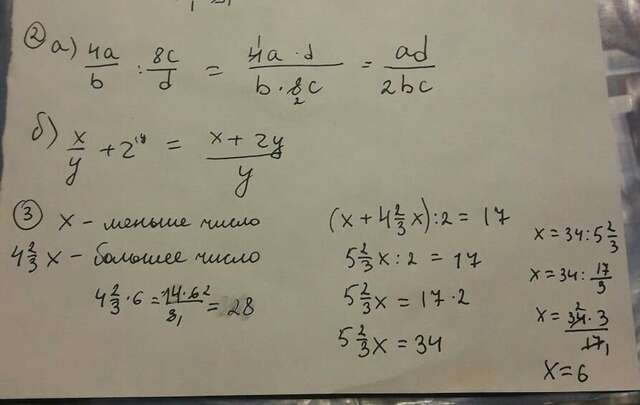 ② а) 4a/b : 8c/d = 4a · d / b · 8c = ad/2bc
1
2
б) x/y + 2^(y = x + 2y / y
③ x – меньше число
4 2/3 x – большее число
4 2/3 · 6 = 14 · 6 2 / 3 1 = 28
(x + 4 2/3 x) : 2 = 17
5 2/3 x : 2 = 17
5 2/3 x = 17 · 2
5 2/3 x = 34
x = 34 : 5 2/3
x = 34 : 17/3
x = 34 2 · 3 / 17 1
x = 6